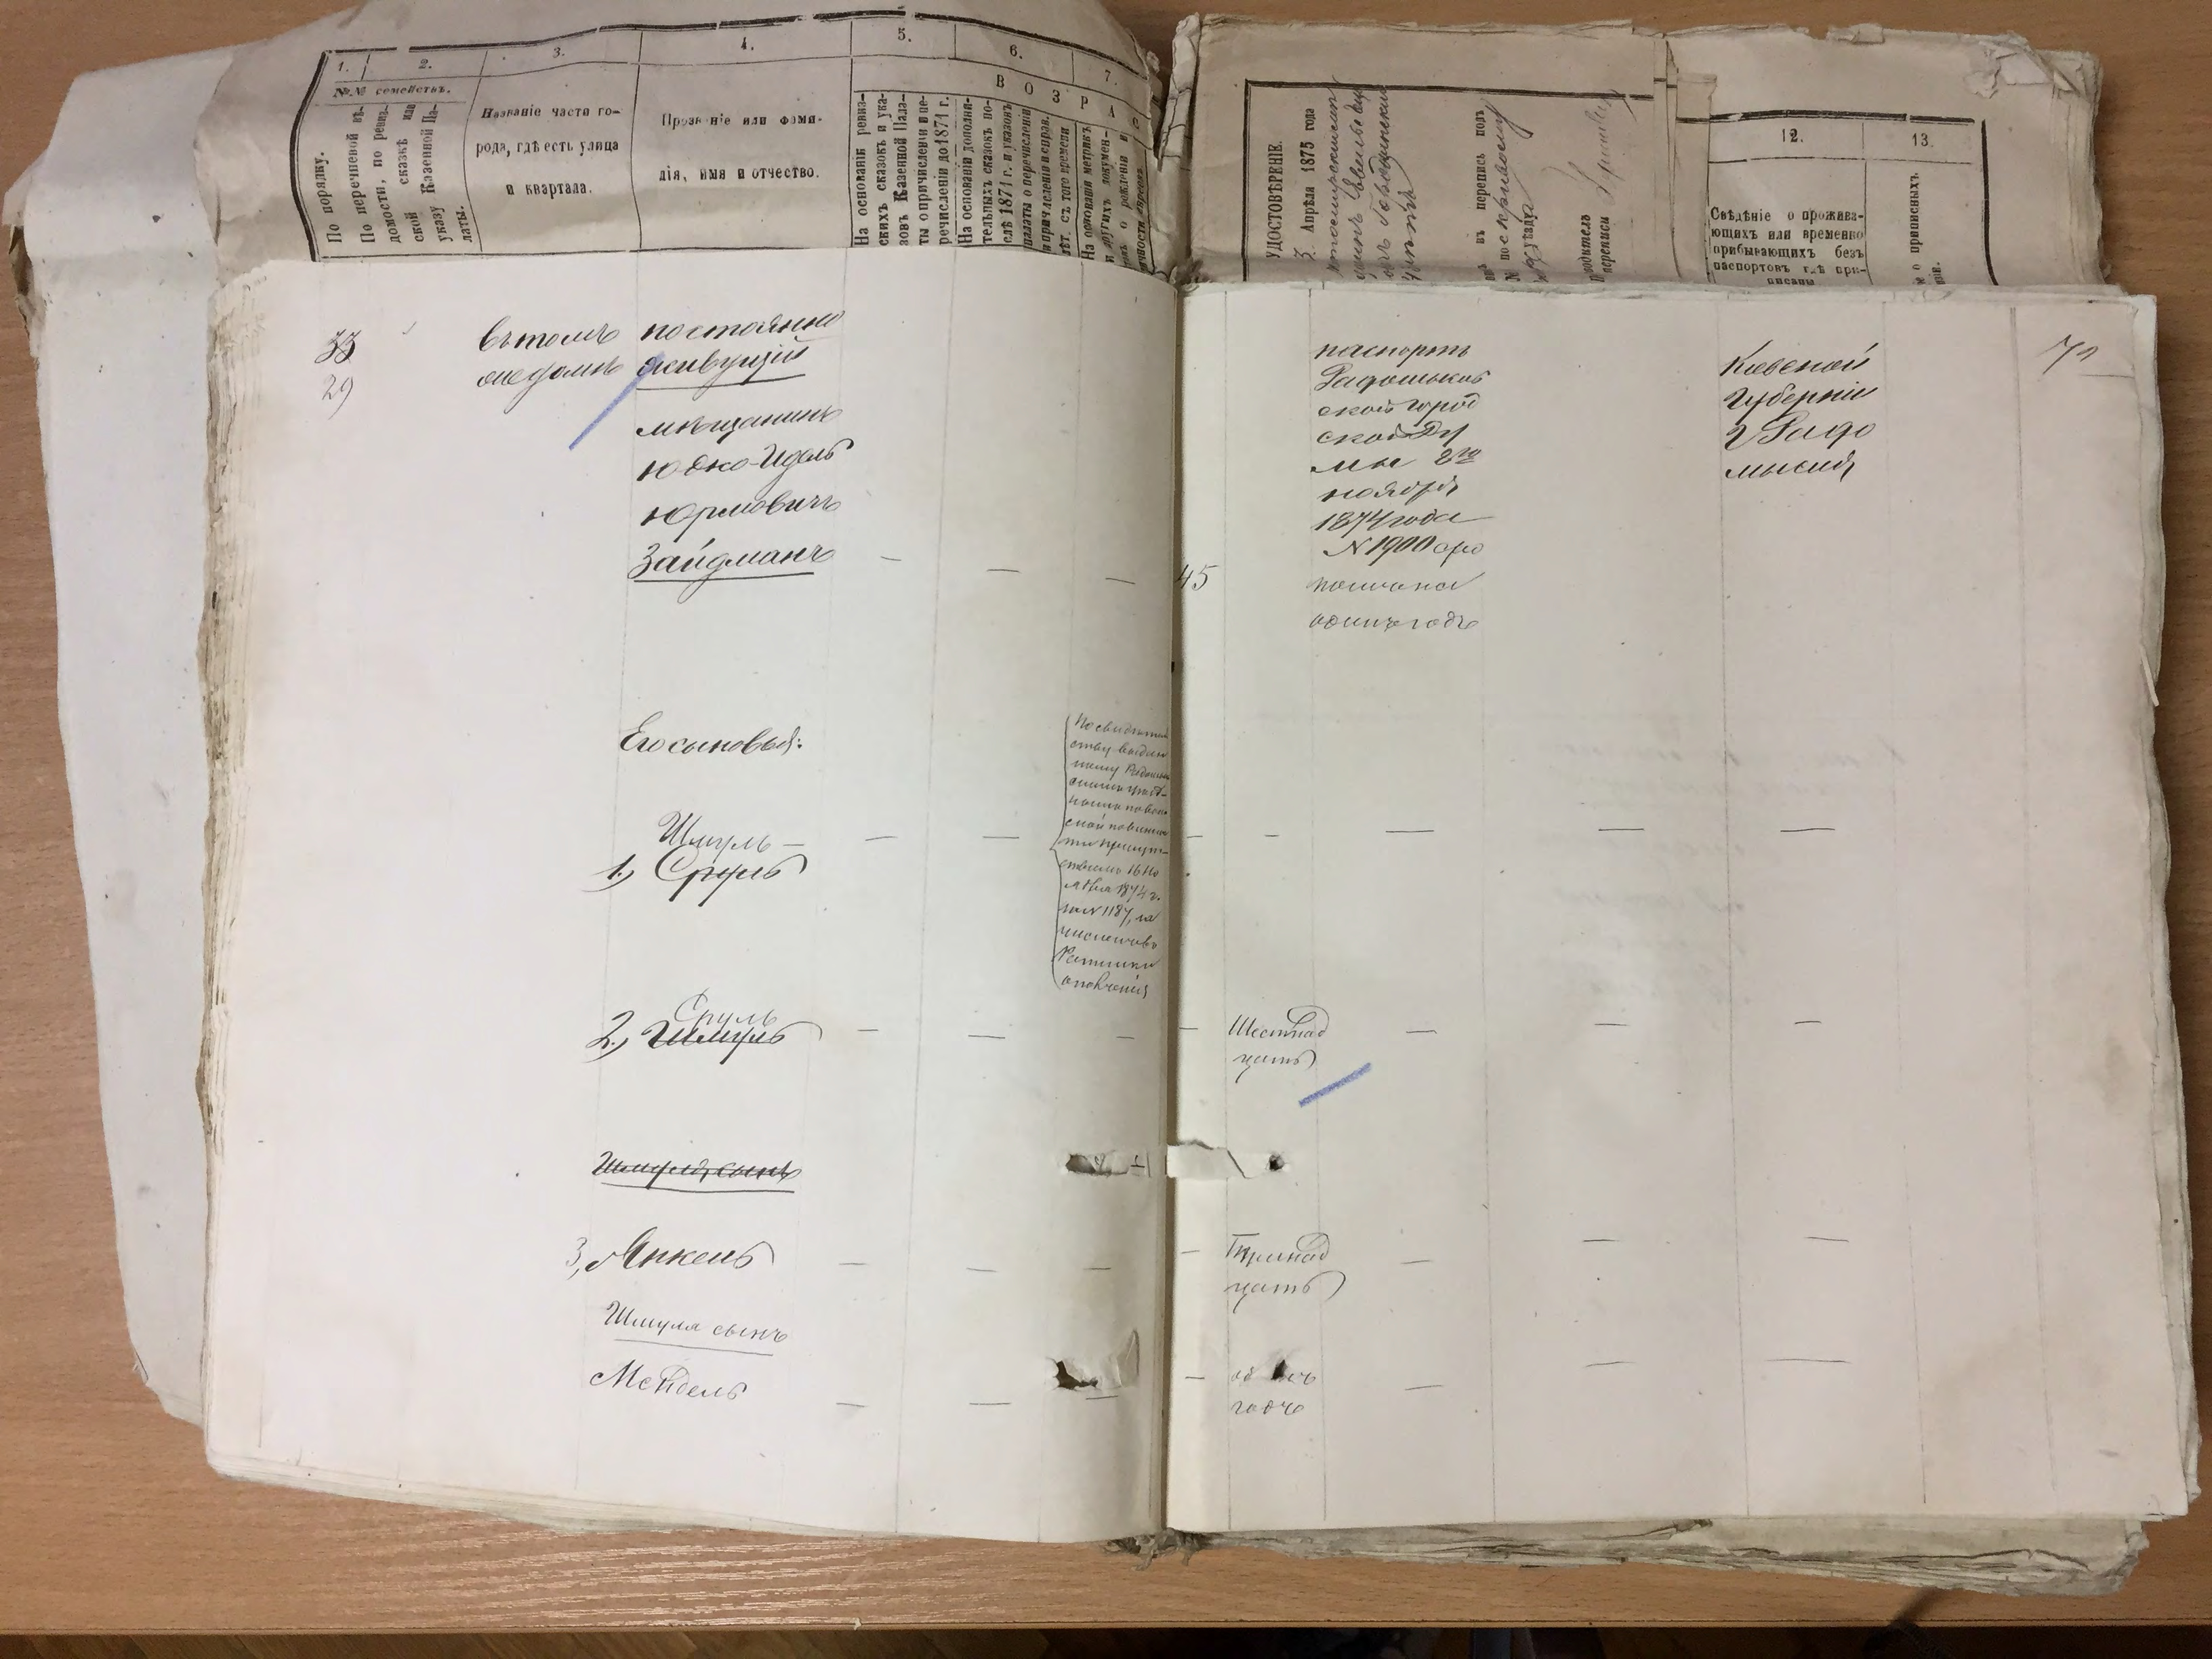 1.
2.
3.
4.
5.
6.
7.
№№ семействъ.
В О З Р А С
По порядку.
По перечневой вѣ-
домости, по ревиз-
ской сказкѣ или
указу Казенной Па-
латы.
Названіе части го-
рода, гдѣ есть улица
и квартала.
Прозваніе или фами-
лія, имя и отчество.
На основаніи ревиз-
скихъ сказокъ и ука-
зовъ Казенной Пала-
ты о причисленіи и пе-
речисленіи до 1871 г.
На основаніи дополни-
тельныхъ сказокъ по-
слѣ 1871 г. и указовъ
палаты о перечисленіи
и причисленіи и справ.
лѣт. съ того времени
На основаніи метрикъ
и другихъ докумен-
товъ о рожденіи и
УДОСТОВѢРЕНІЕ.
3. Апрѣля 1875 года
въ перепись подъ
№ по
уѣзда
переписи
12.
13.
Свѣдѣніе о прожива-
ющихъ или временно
прибывающихъ безъ
паспортовъ гдѣ при-
писаны
о приписныхъ
33
29
въ томъ
же домѣ
постоянно
живущій
мѣщанинъ
Юдко-Идель
Юрмовичъ
Зайдманъ
45
паспортъ
Радомысль
ской город
ской Ду
мы 2го
ноября
1874 года
N 1900 сро
комъ на
одинъ годъ
Кіевской
Губерніи
г Радо
мысля
Его сыновья:
Шмуль
1.) Сруль
По свидѣтель
ству выдан
ному Радомы
скимъ уѣзд-
нымъ по воин
ской повинно
сти присут-
ствіемъ 16 Но
ября 1874 г.
за N 1187, за
численъ въ
Ратники
ополченія
Сруль
2.) Шмуль
Шестнад
цать
Шмуля сынъ
3, Янкель
Тринад
цать
Шмуля сынъ
Мендель
годъ